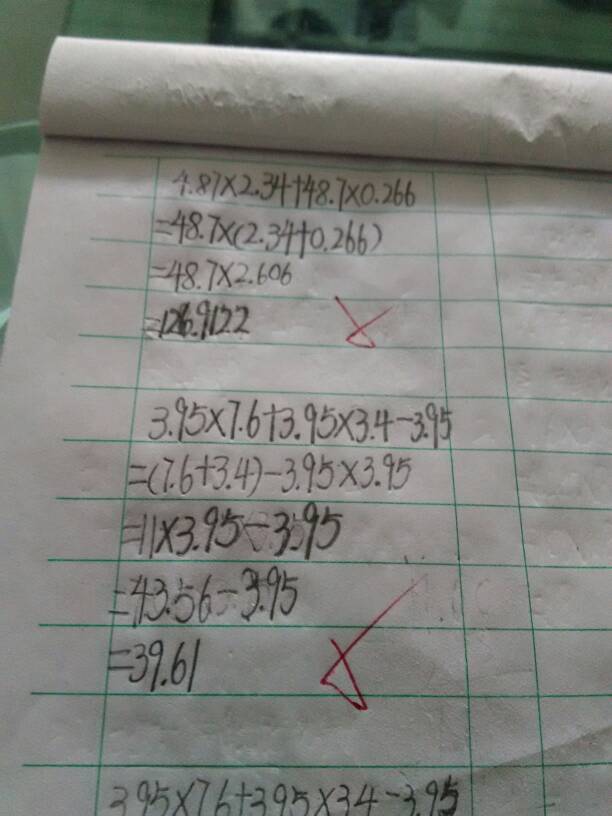 4.87×2.34+48.7×0.266
=48.7×(2.34+0.266)
=48.7×2.606
=126.9122
3.95×7.6+3.95×3.4-3.95
=(7.6+3.4)-3.95×3.95
=11×3.95-3.95
=43.56-3.95
=39.61
3.95×7.6+3.95×3.4-3.95